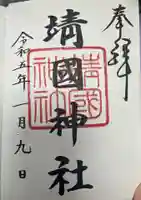 奉拝
靖國神社
靖國神社
令和五年一月九日